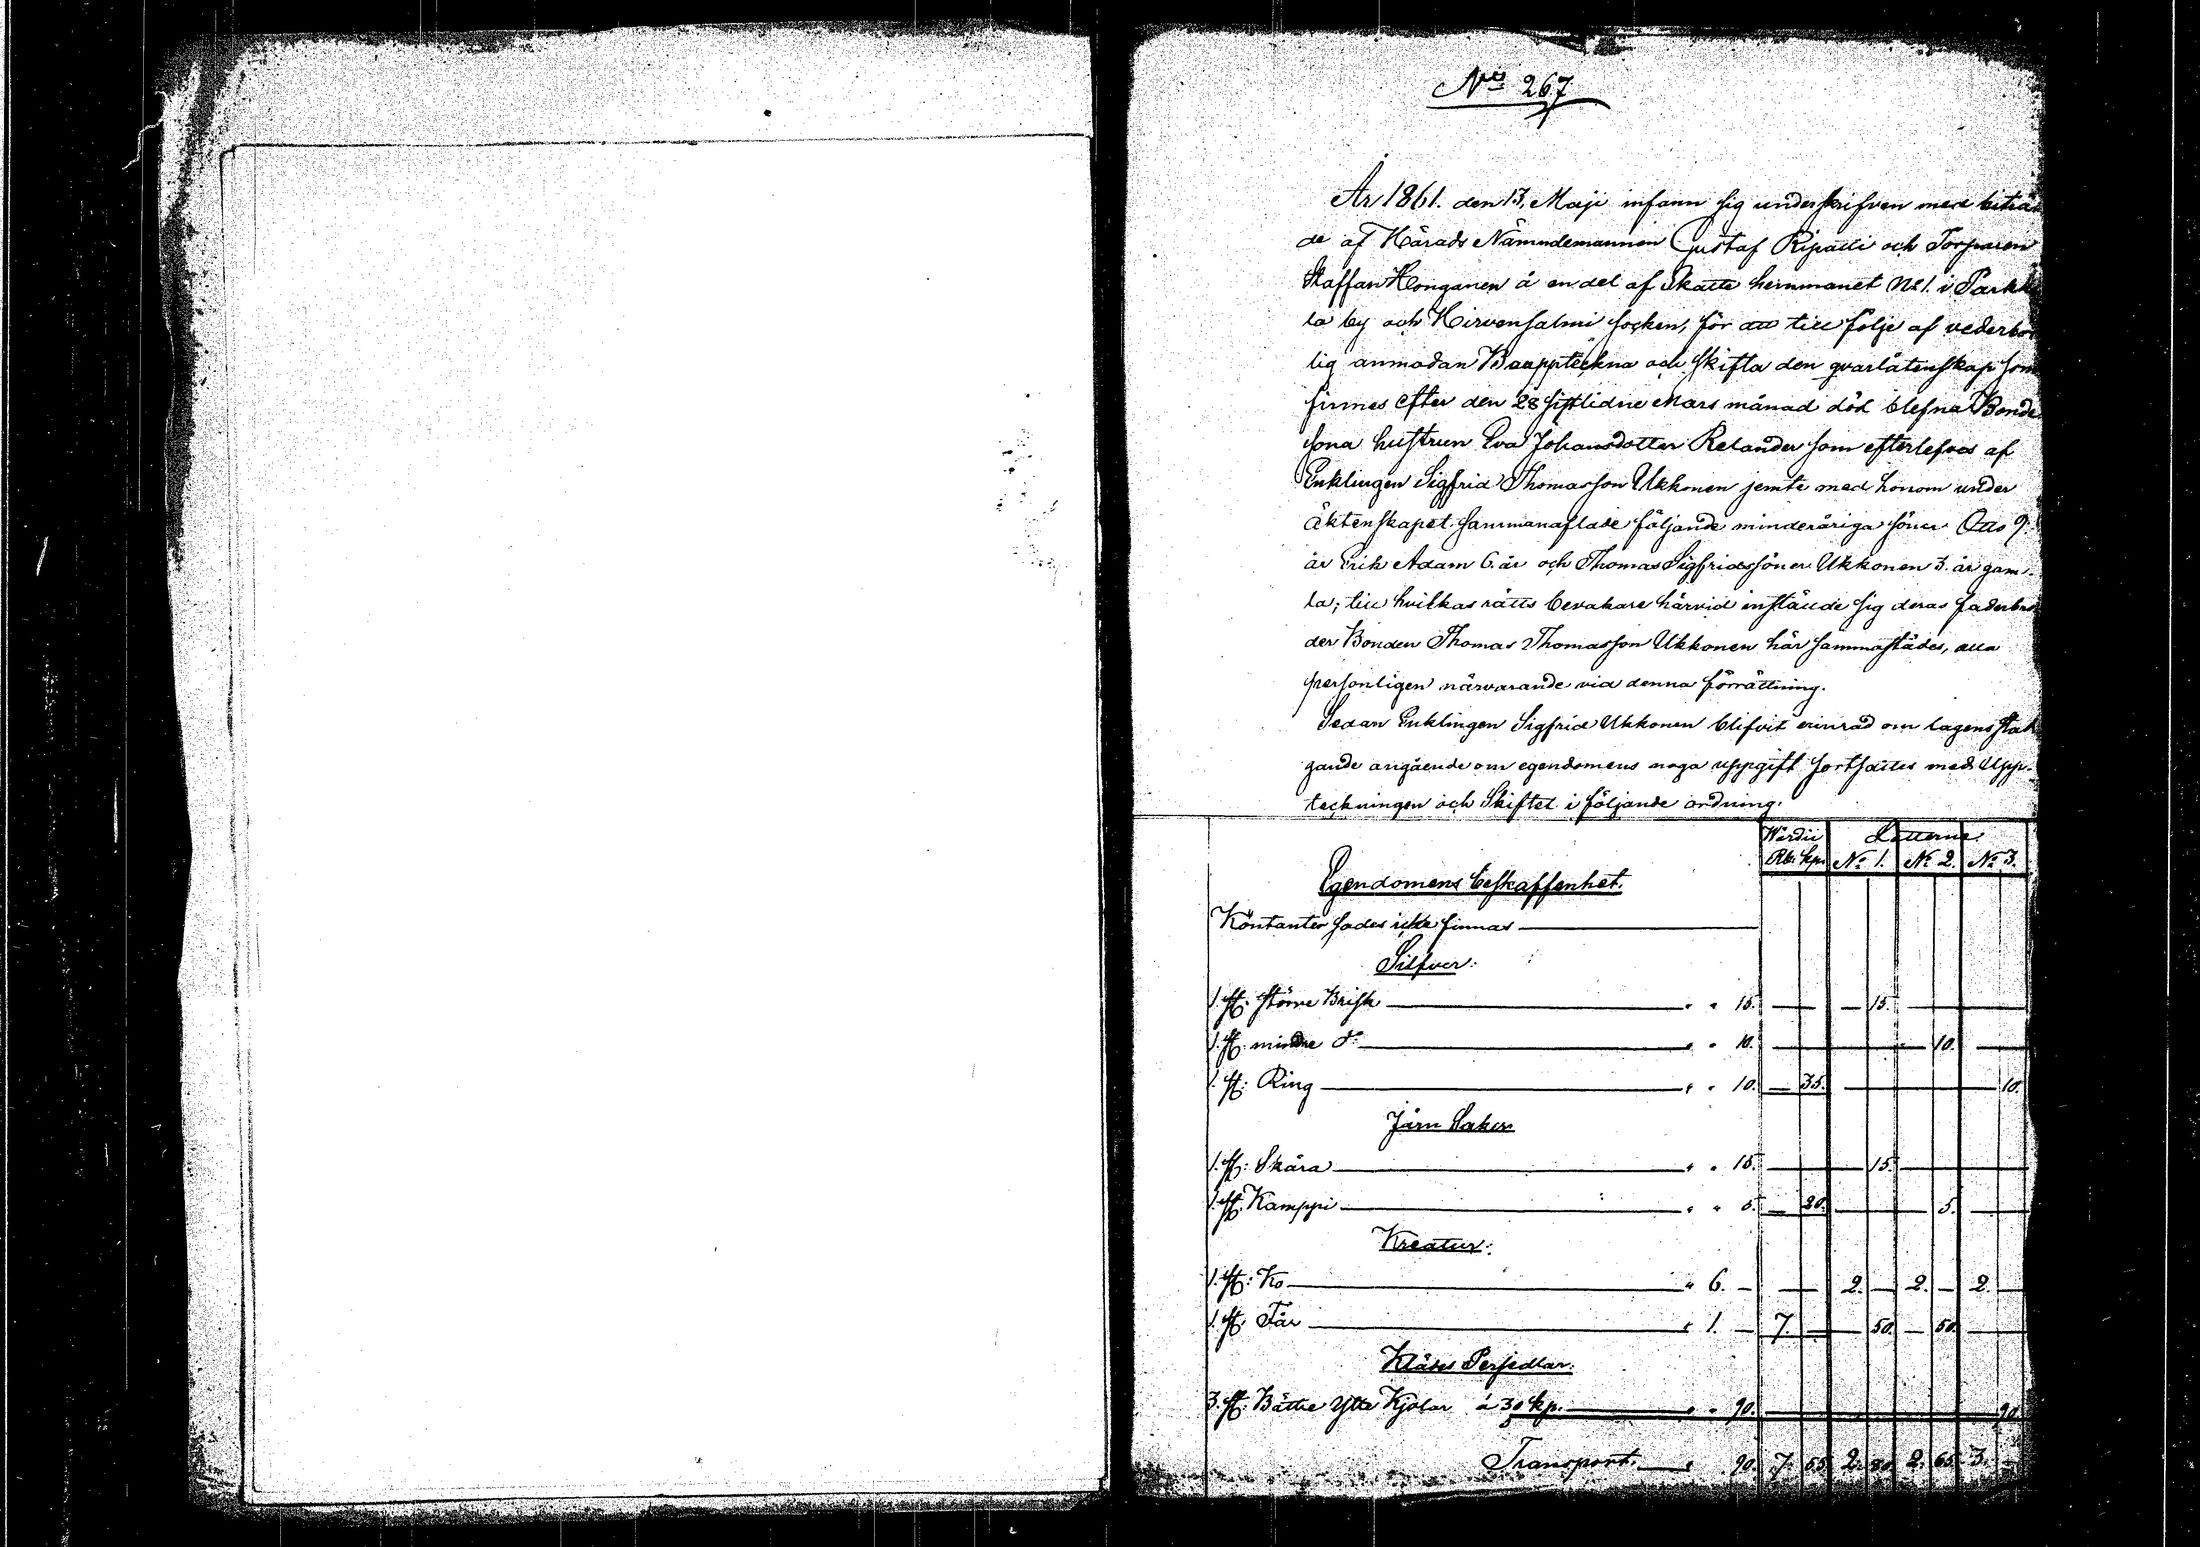 No 267
År 1861. den 13. Maji infann sig underskrifven med biträ-
de af Härads Nämndemannen Gustaf Ripatti och Torparen
Staffan Honganen å en del af Skatte hemmanet No 1. i Parkk
la by och Hirvensalmi socken, för att till följe af vederbör
lig anmodan Bouppteckna och skifta den qvarlåtenskap som
finnes efter den 28 sistlidne Mars månad död blefna Bonde
sona hustrun Eva Johansdotter Relander som efterlefves af
Enklingen Sigfrid Thomasson Ukkonen jemte med honom under
äktenskapet sammanaflade följande minderåriga söner Otto 9.
år Erik Adam 6. år och Thomas Sigfridssöner Ukkonen 3. år gam-
la; till hvilkas rätts bevakare härvid inställde sig deras faderbro
der Bonden Thomas Thomasson Ukkonen här sammastädes, alla
personligen närvarande vid denna förrättning.
Sedan Enklingen Sigfrid Ukkonen blifvit erinrad om lagens stad
gande angående om egendomens noga uppgift fortsattes med Upp-
teckningen och Skiftet i följande ordning.
Wärdie Lotterne
Rb: kp. No 1. No 2. No 3.
Egendomens beskaffenhet.
Kontanter sades icke finnas
Silfver:
1. st: större Brisk " " 15. — — — 15.
1. st: mindre do " " 10. — 10.
1. st: Ring " " 10. — 35. — 10.
Järn Saker
1. st: Skära " " 15. — 15.
1. st: Kamppi " " 5. — 20. — 5.
Kreatur:
1. st: Ko " 6. — — 2. — 2. — 2. —
1. st: Får " 1. — 7. — — 50. — 50.
Klädes Persedlar:
3. st: Bättre Ytte Kjolar á 30 kp. " " 90. — 90.
Transport. " 90. 7. 55. 2. 80. 2. 65. 3.